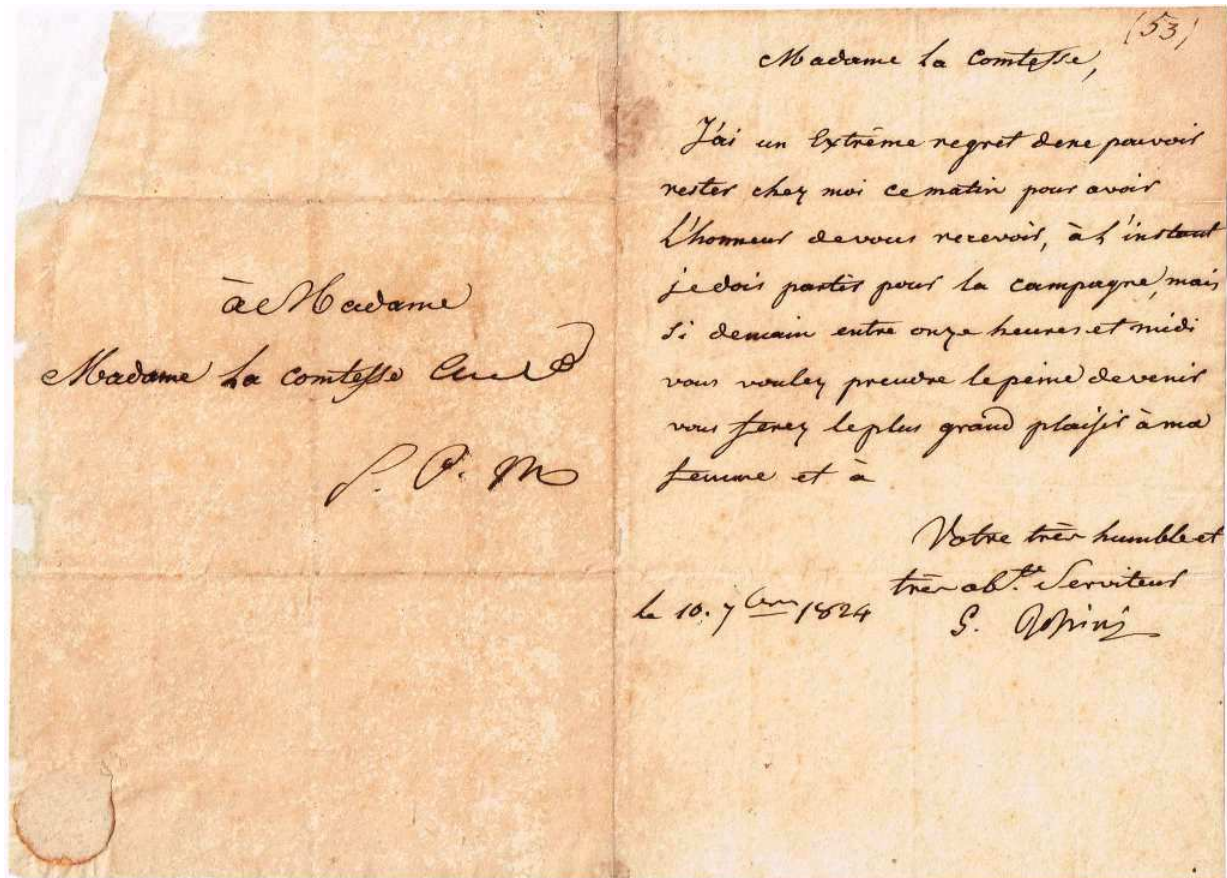 à Madame
Madame la comtesse
S. P. M
(53)
Madame la comtesse,
J'ai un Extrême regret de ne pouvoir
rester chez moi ce matin pour avoir
L'honneur de vous recevoir, à l'instant
je dois partir pour la campagne, mais
si demain entre onze heures et midi
vous voulez prendre le peine de venir
vous ferez le plus grand plaisir à ma
femme et à
Votre très humble et
très obt. Serviteur
le 10. 7bre 1824
G. Rossini